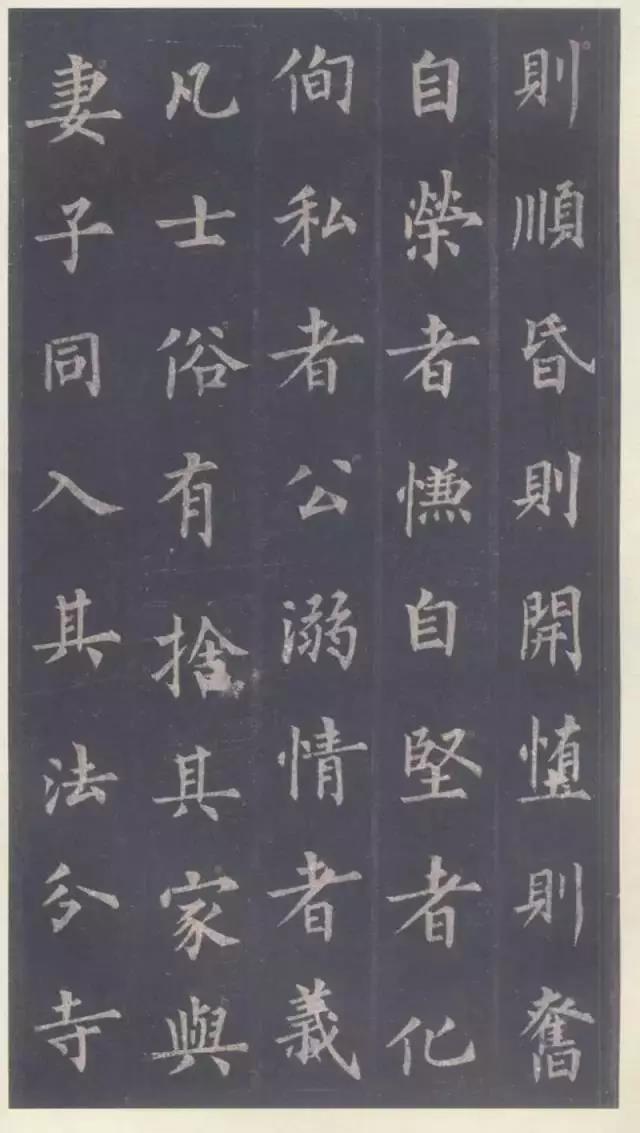 則順昏則開墮則奮
自榮者慊自堅者化
侚私者公溺情者義
凡士俗有捨其家與
妻子同入其法分寺